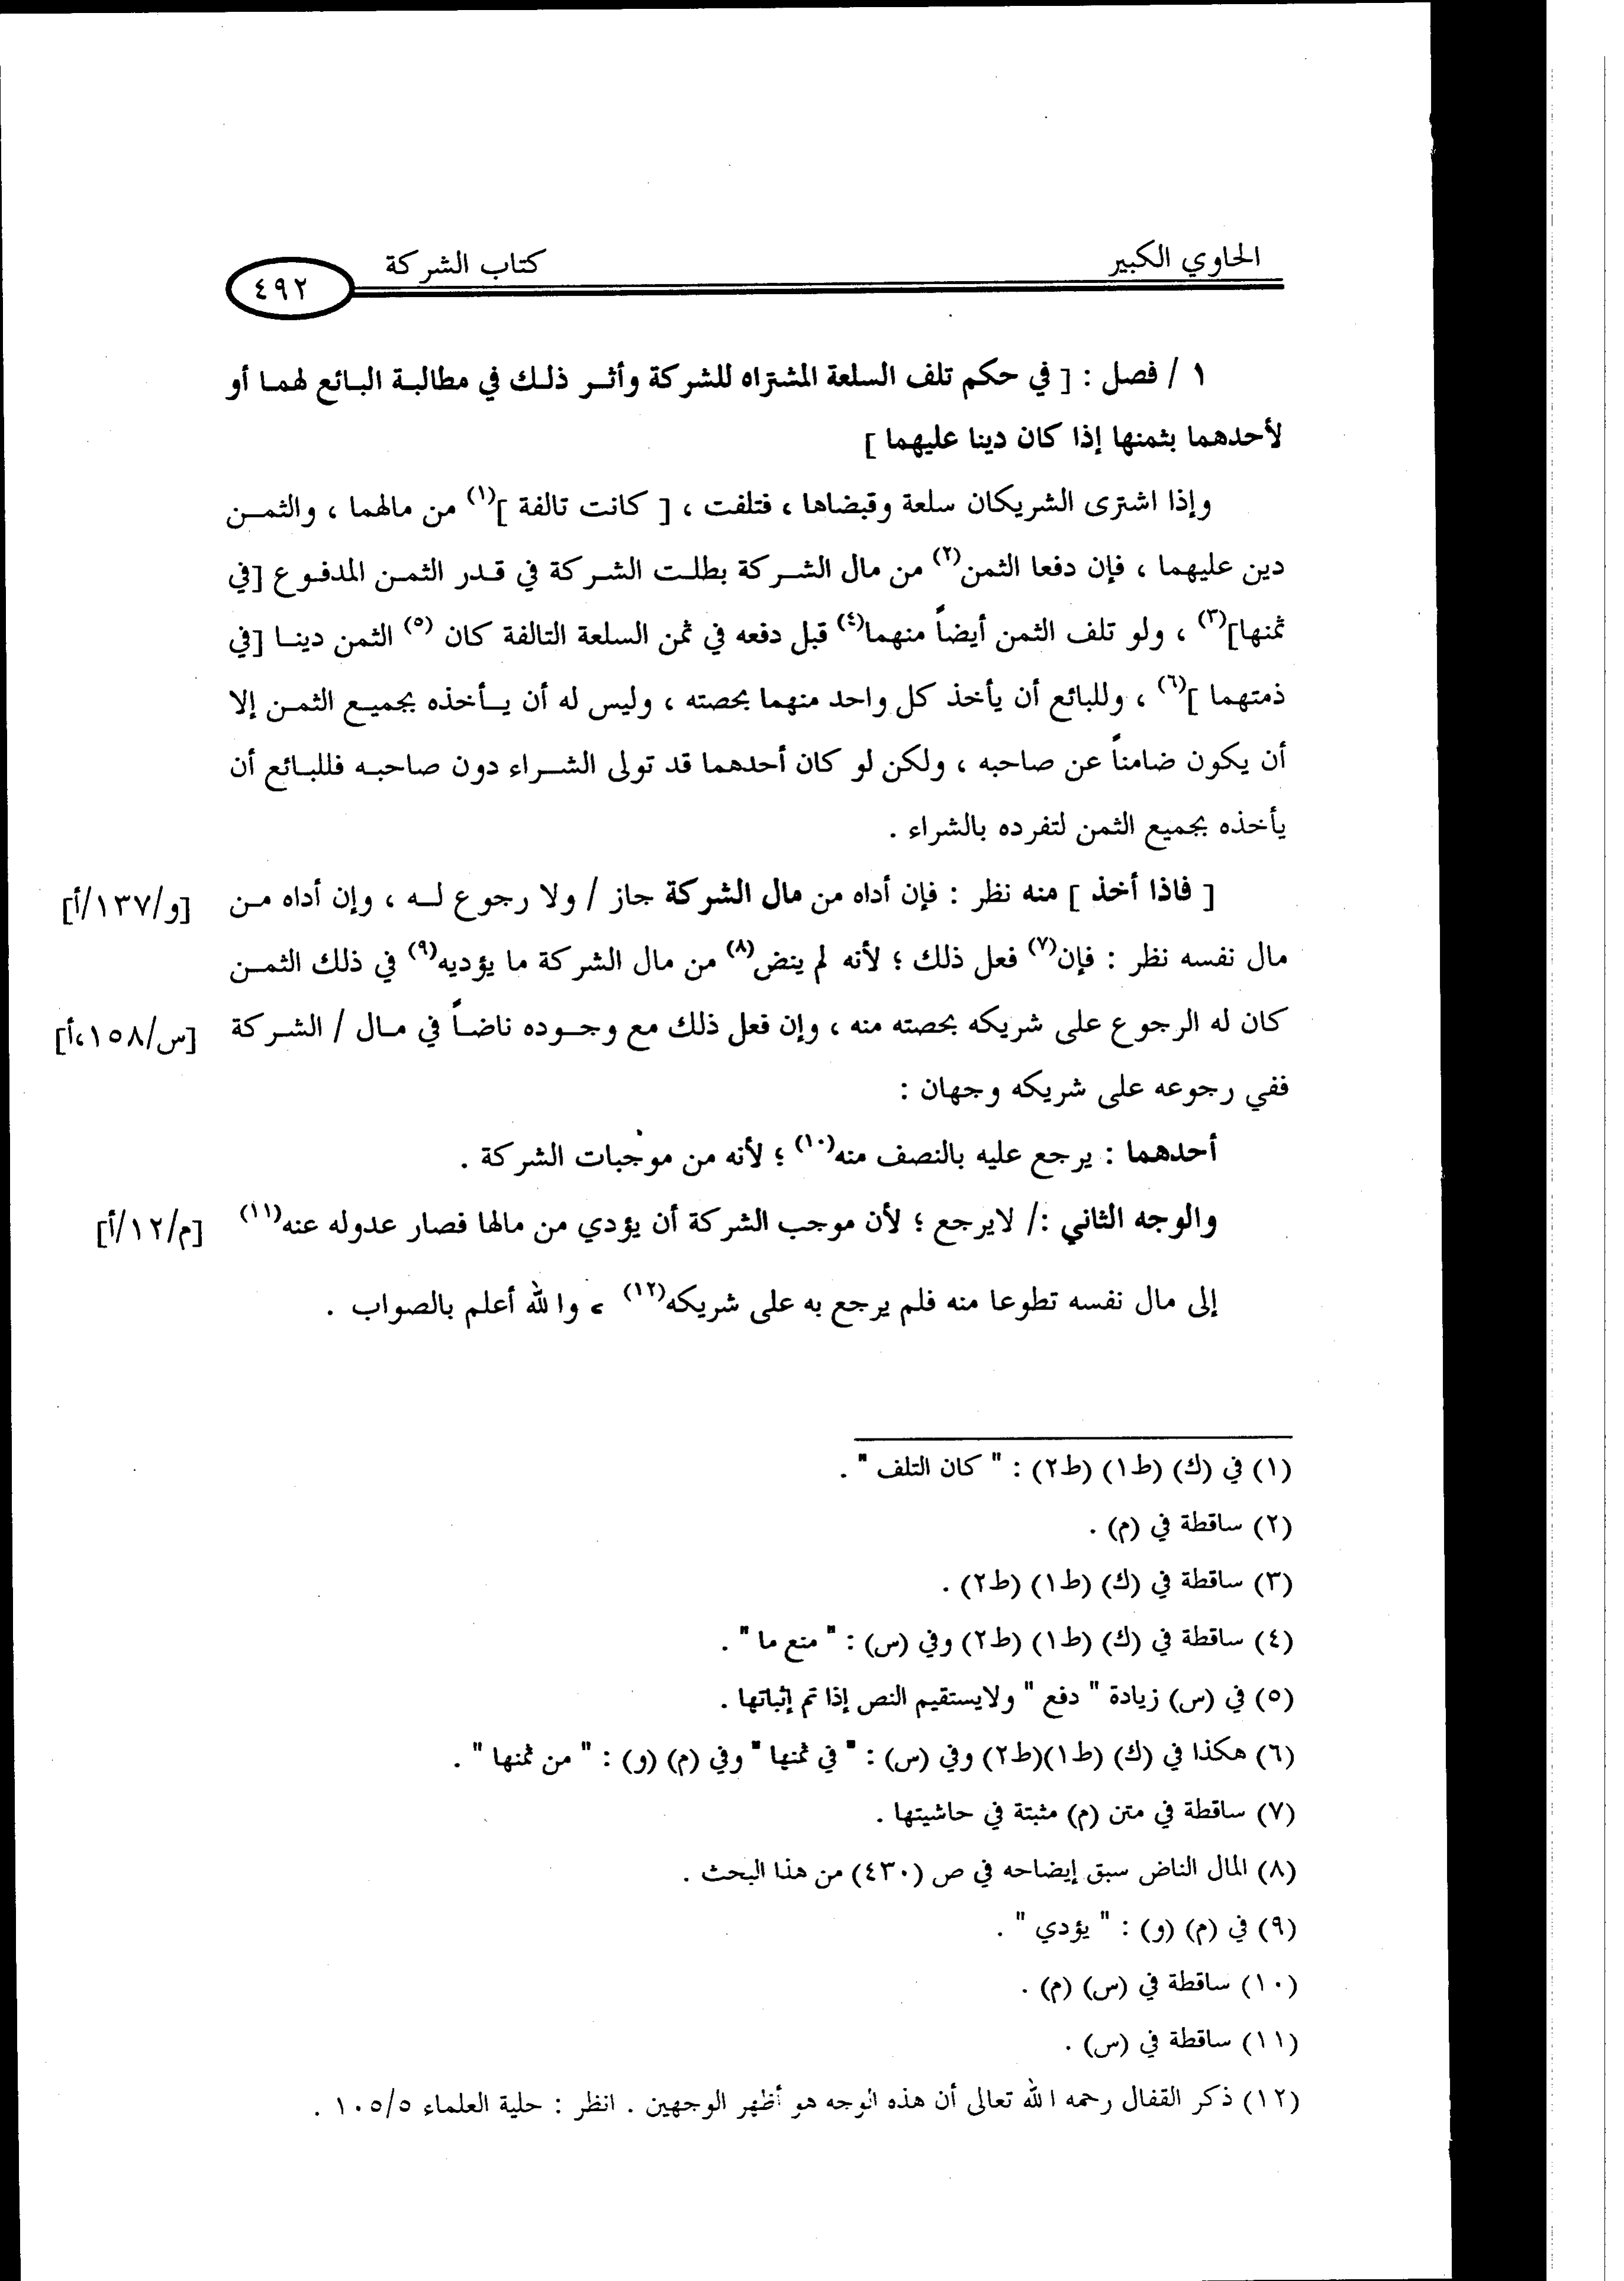 الحاوي الكبير كتاب الشركة ٤٩٢
١ / فصل : [ في حكم تلف السلعة المشتراه للشركة وأثر ذلك في مطالبة البائع لهما أو
لأحدهما بثمنها إذا كان دينا عليهما ]
وإذا اشترى الشريكان سلعة وقبضاها ، فتلفت ، [ كانت تالفة ](١) من مالهما ، والثمن
دين عليهما ، فإن دفعا الثمن(٢) من مال الشركة بطلت الشركة في قدر الثمن المدفوع [في
ثمنها](٣) ، ولو تلف الثمن أيضاً منهما(٤) قبل دفعه في ثمن السلعة التالفة كان (٥) الثمن دينا [في
ذمتهما ](٦) ، وللبائع أن يأخذ كل واحد منهما بحصته ، وليس له أن يأخذه بجميع الثمن إلا
أن يكون ضامناً عن صاحبه ، ولكن لو كان أحدهما قد تولى الشراء دون صاحبه فللبائع أن
يأخذه بجميع الثمن لتفرده بالشراء .
[ فاذا أخذ ] منه نظر : فإن أداه من مال الشركة جاز / ولا رجوع له ، وإن أداه من [و/١٣٧/أ]
مال نفسه نظر : فإن(٧) فعل ذلك ؛ لأنه لم ينض(٨) من مال الشركة ما يؤديه(٩) في ذلك الثمن
كان له الرجوع على شريكه بحصته منه ، وإن فعل ذلك مع وجوده ناضاً في مال / الشركة [س/١٥٨،أ]
ففي رجوعه على شريكه وجهان :
أحدهما : يرجع عليه بالنصف منه(١٠) ؛ لأنه من موجبات الشركة .
والوجه الثاني :/ لايرجع ؛ لأن موجب الشركة أن يؤدي من مالها فصار عدوله عنه(١١) [م/١٢/أ]
إلى مال نفسه تطوعا منه فلم يرجع به على شريكه(١٢) ، والله أعلم بالصواب .
(١) في (ك) (ط١) (ط٢) : " كان التلف " .
(٢) ساقطة في (م) .
(٣) ساقطة في (ك) (ط١) (ط٢) .
(٤) ساقطة في (ك) (ط١) (ط٢) وفي (س) : " منع ما " .
(٥) في (س) زيادة " دفع " ولايستقيم النص إذا تم إثباتها .
(٦) هكذا في (ك) (ط١)(ط٢) وفي (س) : " في ثمنها " وفي (م) (و) : " من ثمنها " .
(٧) ساقطة في متن (م) مثبتة في حاشيتها .
(٨) المال الناض سبق إيضاحه في ص (٤٣٠) من هذا البحث .
(٩) في (م) (و) : " يؤدي " .
(١٠) ساقطة في (س) (م) .
(١١) ساقطة في (س) .
(١٢) ذكر القفال رحمه الله تعالى أن هذه الوجه هو أظهر الوجهين . انظر : حلية العلماء ١٠٥/٥ .